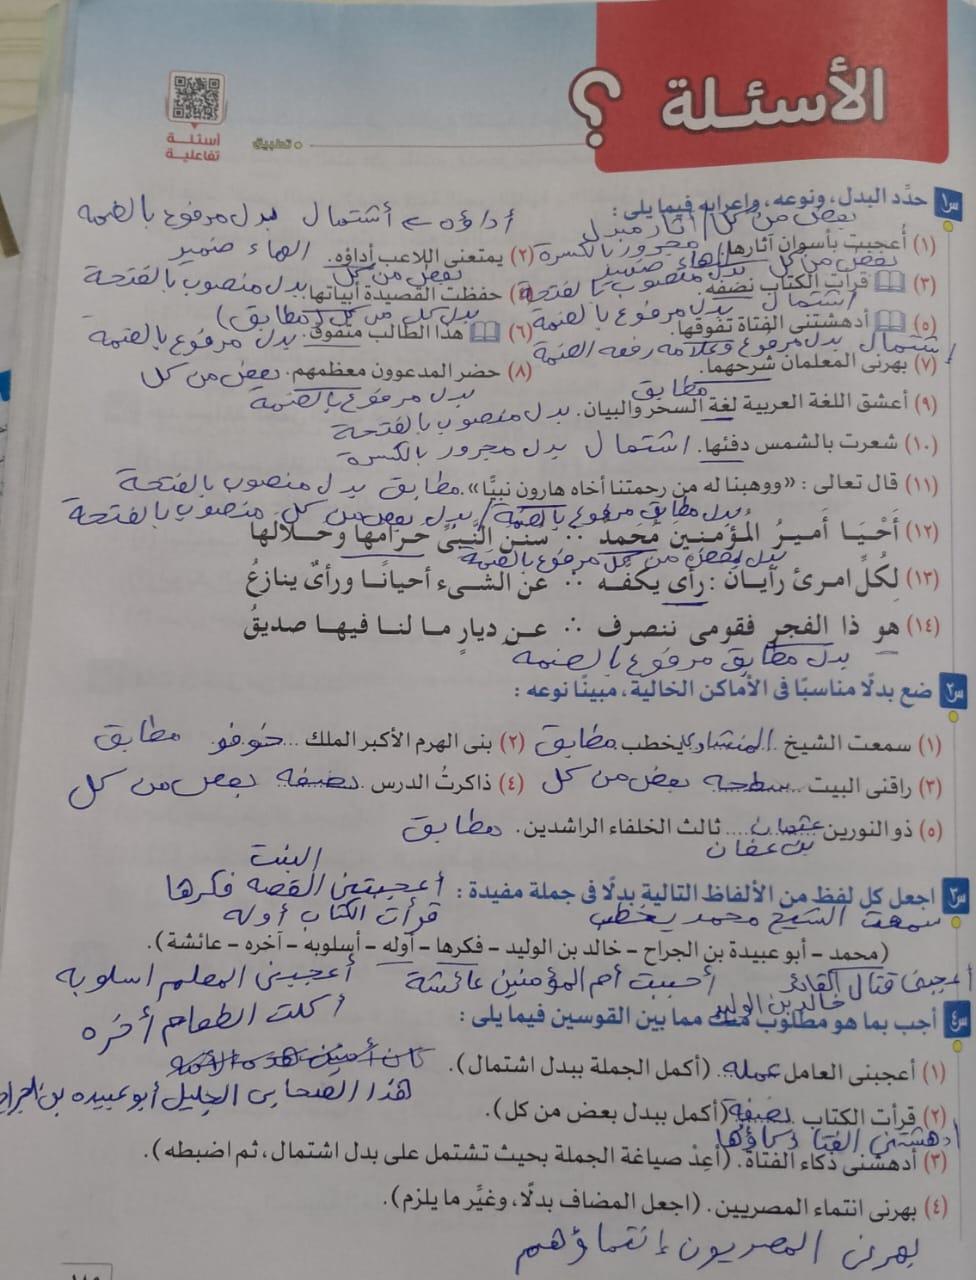 الأسئلة ؟
أسئلة
تفاعلية
تطبيق
س١ حدِّد البدل، ونوعه، وإعرابه فيما يلى :
أداؤه ← أشتمال بدل مرفوع بالضمه
بعض من كل / آثار مبدل
مجرور بالكسرة
الهاء ضمير
(١) أُعجبت بأسوان آثارها.
(٢) يمتعنى اللاعب أداؤه.
الهاء ضمير
بعض من كل بدل منصوب بالفتحة
بعض من كل بدل منصوب بالفتحة
(٣) قرأت الكتاب نصفه.
(٤) حفظت القصيدة أبياتها.
اشتمال بدل مرفوع بالضمة
بدل كل من كل (مطابق)
(٥) أدهشتنى الفتاة تفوقها.
(٦) هذا الطالب متفوق. بدل مرفوع بالضمة
إشتمال بدل مرفوع وعلامه رفعه الضمة
(٧) بهرنى المعلمان شرحهما.
(٨) حضر المدعوون معظمهم. بعض من كل
بدل مرفوع بالضمة
مطابق
(٩) أعشق اللغة العربية لغة السحر والبيان. بدل منصوب بالفتحة
(١٠) شعرت بالشمس دفئها. اشتمال بدل مجرور بالكسرة
(١١) قال تعالى : «ووهبنا له من رحمتنا أخاه هارون نبيًّا». مطابق بدل منصوب بالفتحة
بدل مطابق مرفوع بالضمة / بدل بعض من كل منصوب بالفتحة
(١٢) أَحْيَا أَميرُ المُؤمنينَ مُحَمدٌ ∴ سُنَنَ النَّبِىِّ حَرَامَها وحَلَالَها
بدل بعض من كل مرفوع بالضمة
(١٣) لِكُلِّ امرئ رأيان : رأى يكفه ∴ عن الشىء أحيانًا ورأىٌ ينازعُ
(١٤) هو ذا الفجر فقومى ننصرف ∴ عن ديارٍ ما لنا فيها صديقُ
بدل مطابق مرفوع بالضمه
س٢ ضع بدلًا مناسبًا فى الأماكن الخالية، مبينًا نوعه :
(١) سمعت الشيخ المنشاوى يخطب مطابق
(٢) بنى الهرم الأكبر الملك خوفو مطابق
(٣) راقنى البيت سطحه بعض من كل
(٤) ذاكرتُ الدرس نصفه بعض من كل
(٥) ذو النورين عثمان ثالث الخلفاء الراشدين. مطابق
بن عفان
البنت
س٣ اجعل كل لفظ من الألفاظ التالية بدلًا فى جملة مفيدة : أعجبتنى القصه فكرها
سمعت الشيخ محمد يخطب
قرأت الكتاب أوله
(محمد – أبو عبيدة بن الجراح – خالد بن الوليد – فكرها – أوله – أسلوبه – آخره – عائشة).
أعجبنى قتال القائد
خالد بن الوليد
أحببت أم المؤمنين عائشة
أعجبنى المعلم اسلوبه
أكلت الطعام أخره
س٤ أجب بما هو مطلوب منك مما بين القوسين فيما يلى :
كان أمين هذه الأمه
(١) أعجبنى العامل عمله (أكمل الجملة ببدل اشتمال).
هذا الصحابى الجليل أبو عبيده بن الجراح
(٢) قرأت الكتاب نصفه (أكمل ببدل بعض من كل).
ادهشتنى الفتاه ذكاؤها
(٣) أدهشنى ذكاء الفتاة. (أعِدْ صياغة الجملة بحيث تشتمل على بدل اشتمال، ثم اضبطه).
(٤) بهرنى انتماء المصريين. (اجعل المضاف بدلًا، وغيِّر ما يلزم).
بهرنى المصريون إنتماؤهم